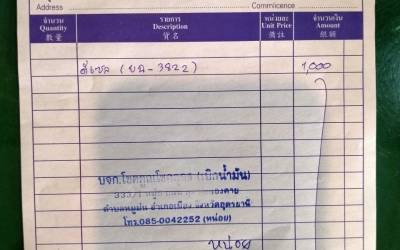 Address Commlicence
จำนวน รายการ หน่วยละ จำนวนเงิน
Quantity Description Unit Price Amount
數量 貨名 備註 銀額
ดีเซล (บฉ-3822) 1,000
(เบิกน้ำมัน)
ตำบลหมูม่น อำเภอเมือง จังหวัดอุดรธานี
โทร.085-0042252 (หน่อย)
หน่อย